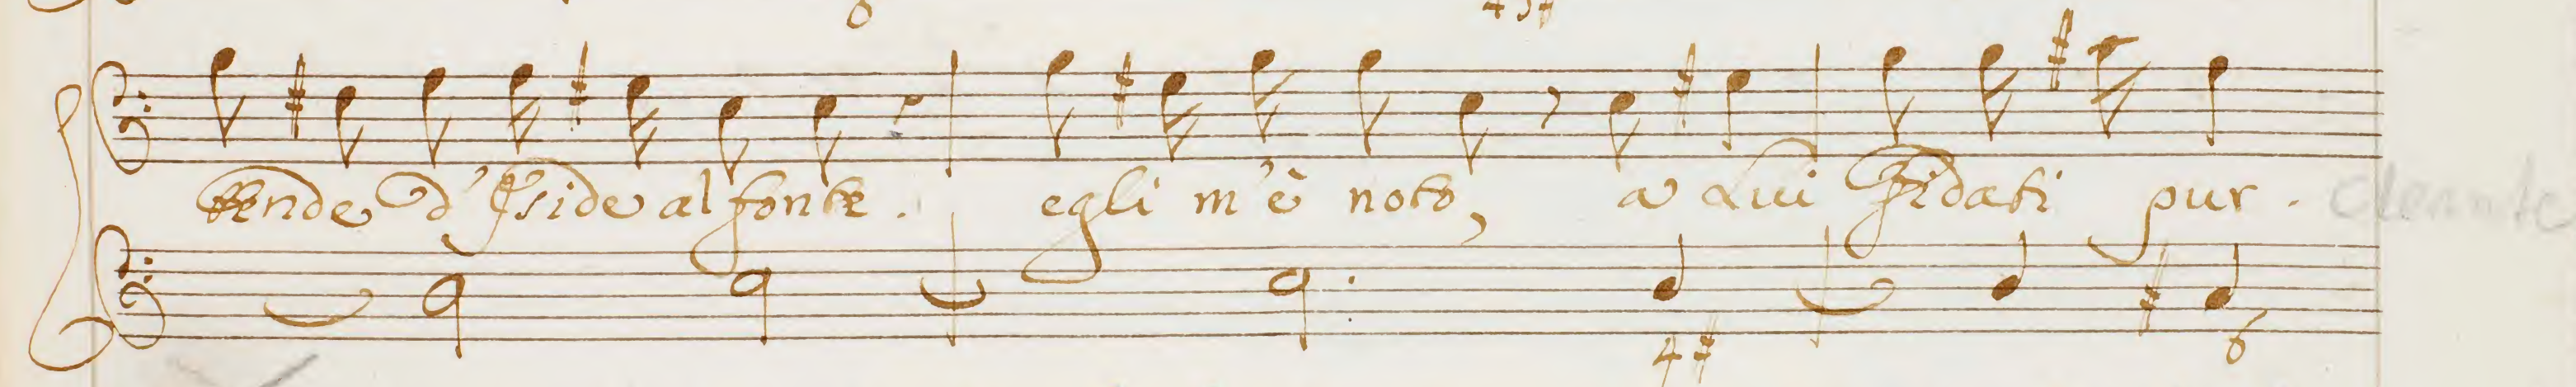 6 4 3#
tende d'Iside al fonte. egli m'è noto, a Lui fidati pur. Cleante
4# 6